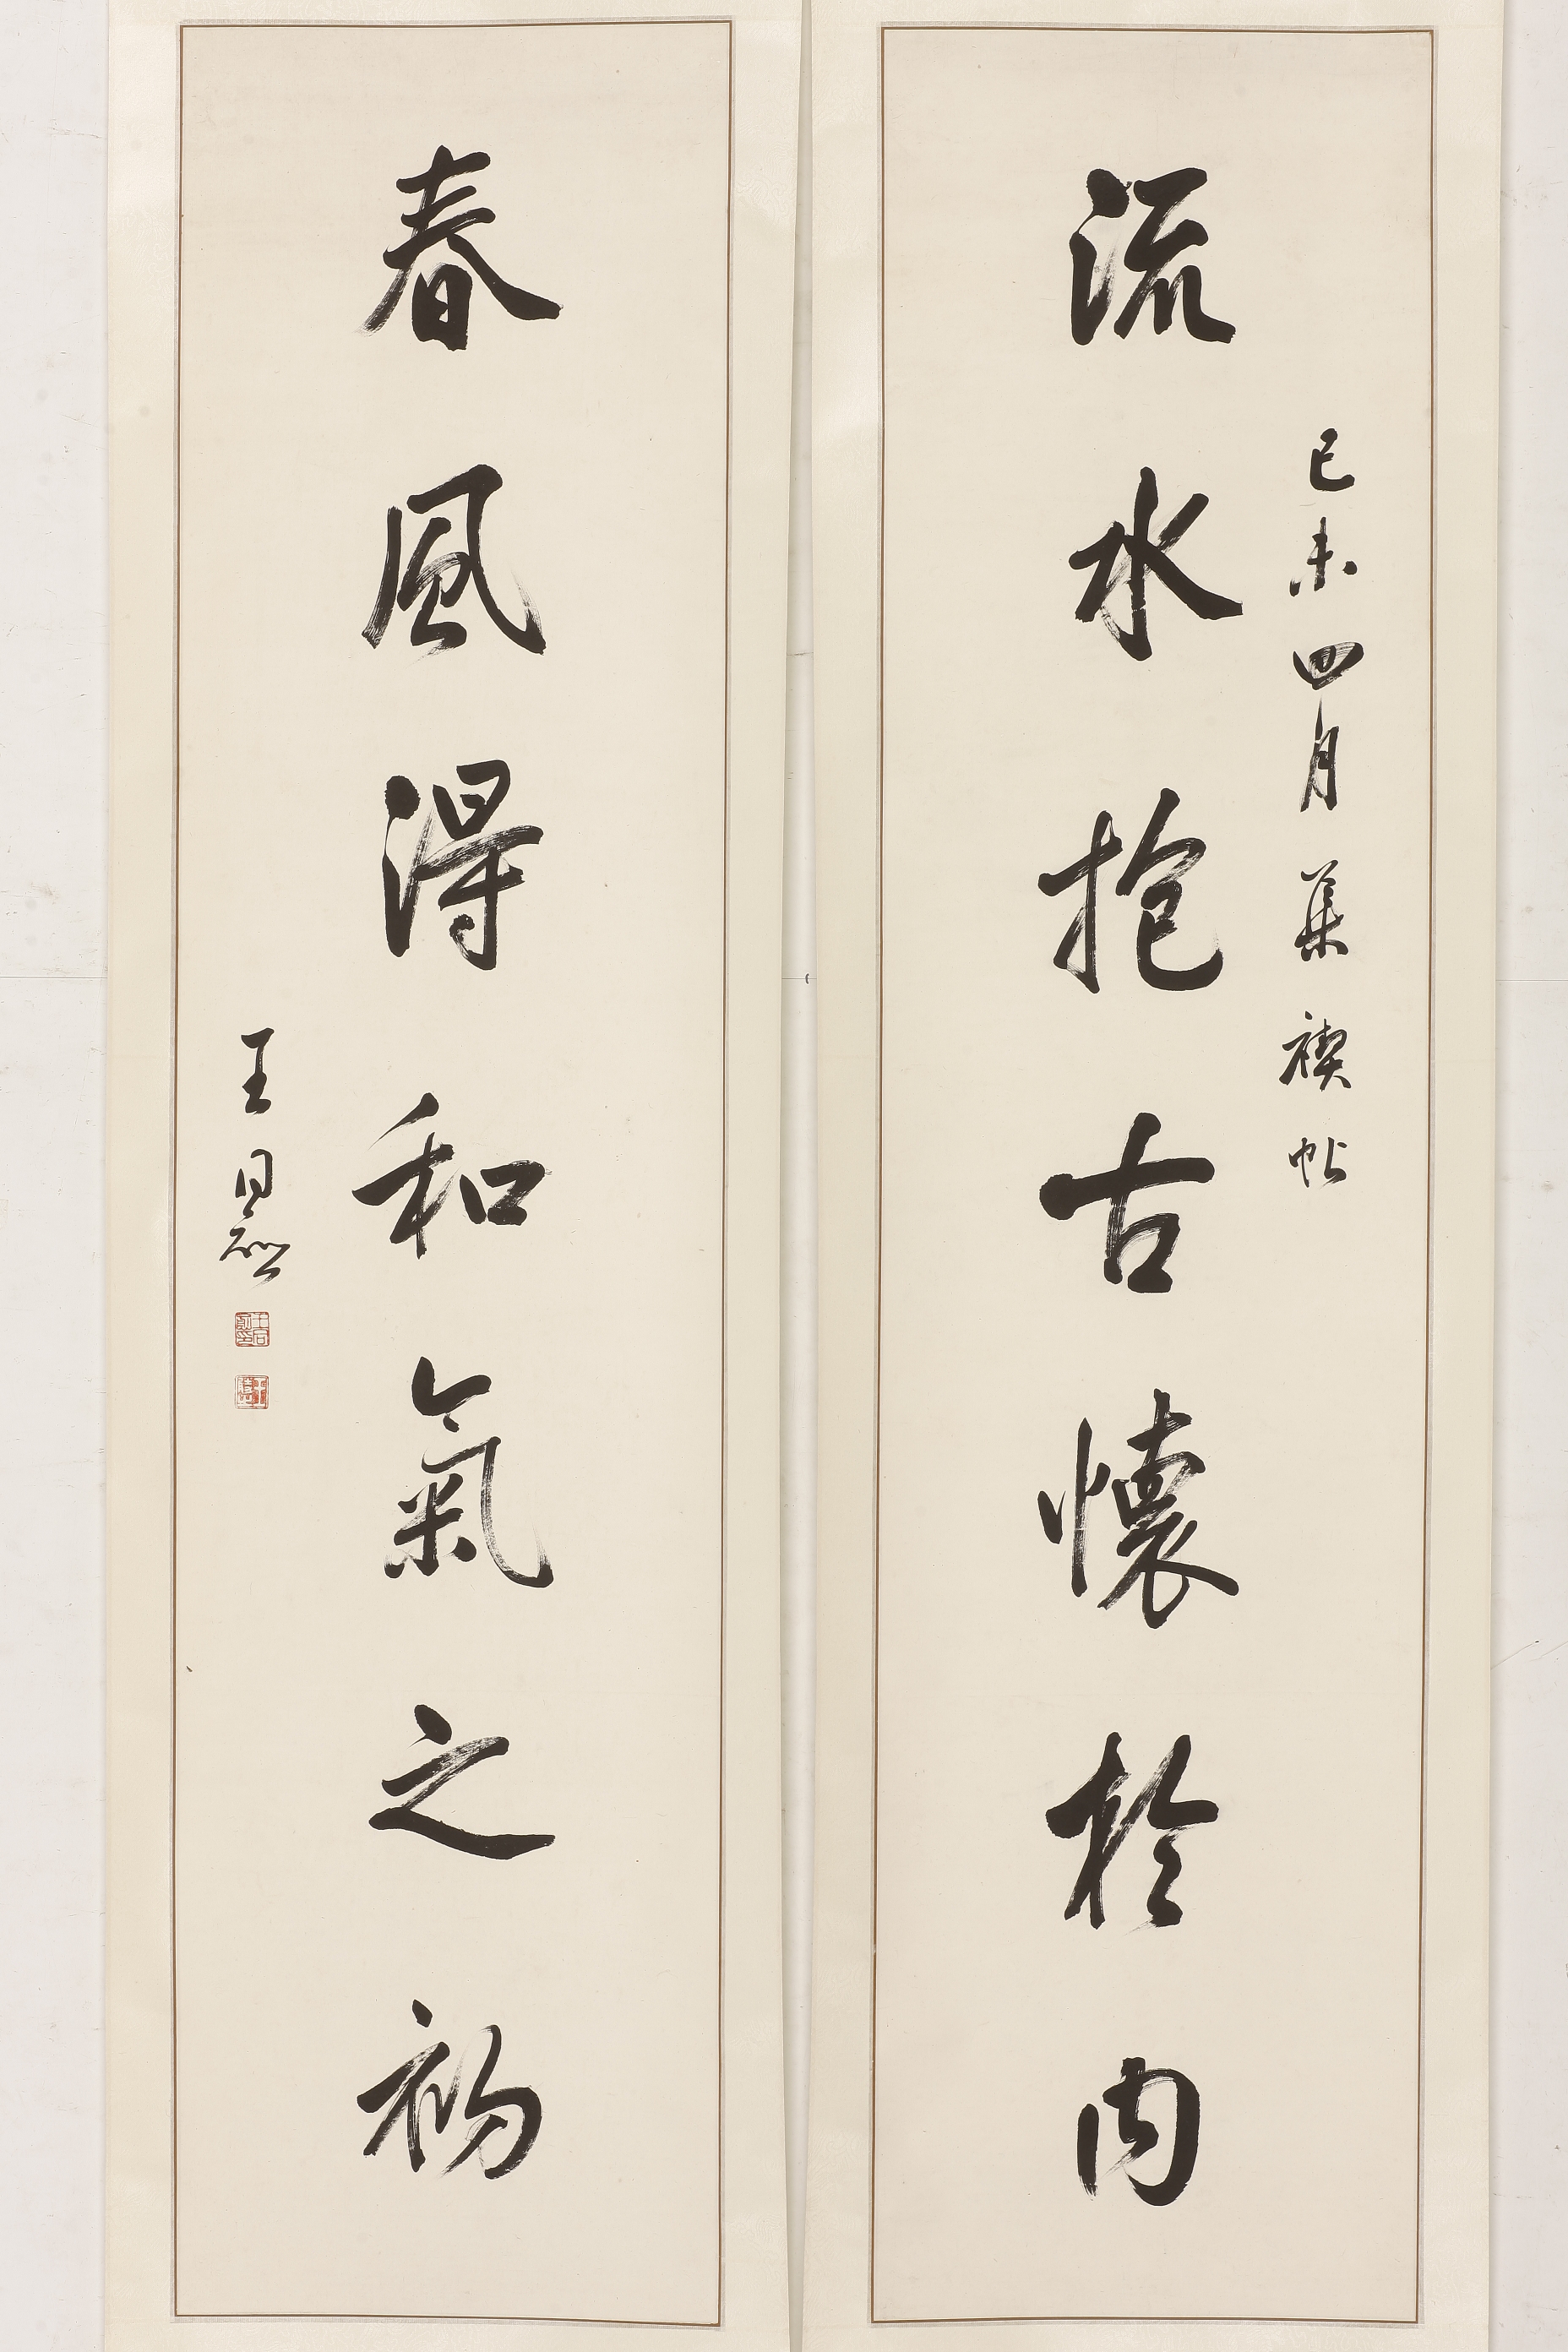 己未四月集禊帖
流水抱古懷於內
春風得和氣之初
王同愈